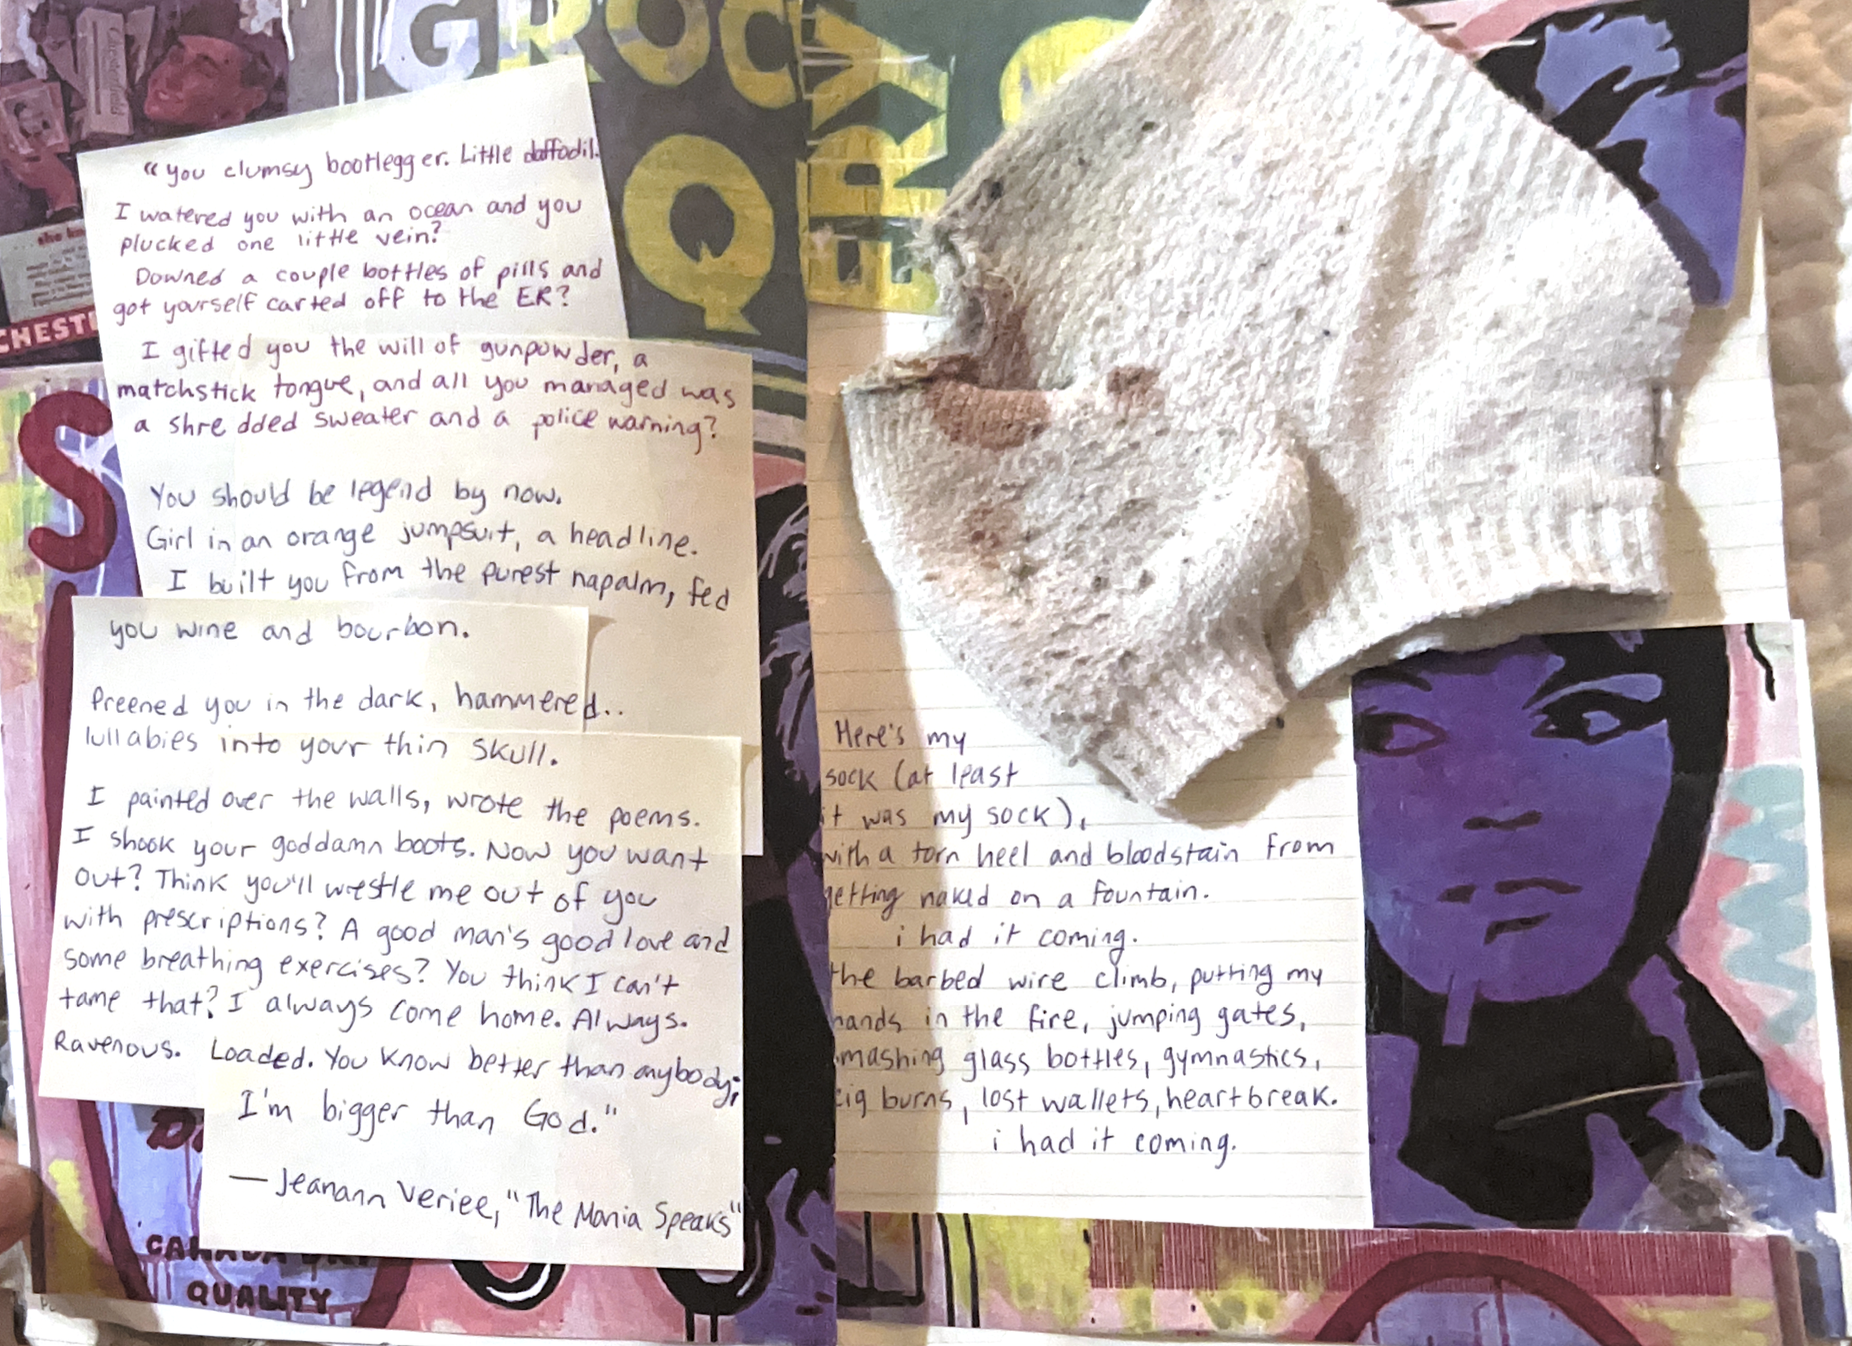 GROCERY
Q
CHEST
S
"you clumsy bootlegger. Little daffodil.
I watered you with an ocean and you
plucked one little vein?
Downed a couple bottles of pills and
got yourself carted off to the ER?
I gifted you the will of gunpowder, a
matchstick tongue, and all you managed was
a shredded sweater and a police warning?
You should be legend by now.
Girl in an orange jumpsuit, a headline.
I built you from the purest napalm, fed
you wine and bourbon.
Preened you in the dark, hammered..
lullabies into your thin skull.
I painted over the walls, wrote the poems.
I shook your goddamn boots. Now you want
out? Think you'll wrestle me out of you
with prescriptions? A good man's good love and
some breathing exercises? You think I can't
tame that? I always come home. Always.
Ravenous. Loaded. You know better than anybody;
I'm bigger than God."
— Jeanann Veriee, "The Mania Speaks"
QUALITY
Here's my
sock (at least
it was my sock),
with a torn heel and bloodstain from
getting naked on a fountain.
i had it coming.
the barbed wire climb, putting my
hands in the fire, jumping gates,
smashing glass bottles, gymnastics,
cig burns, lost wallets, heartbreak.
i had it coming.